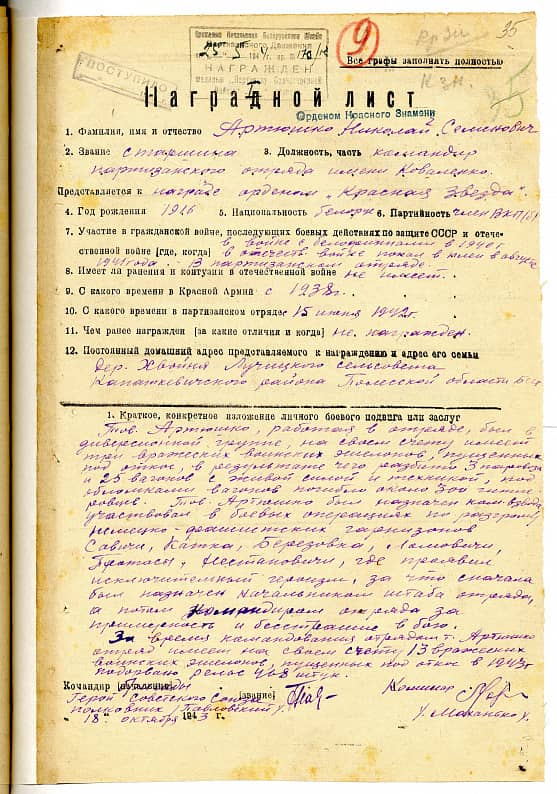 35
Приказом Начальника Белорусского Штаба
Партизанского Движения
НАГРАЖДЕН
медалью „Партизану Отечественной
ПОСТУПИЛО
9
Все графы заполнять полностью
Наградной лист
Орденом Красного Знамени
1. Фамилия, имя и отчество Артюшко Николай Семенович
2. Звание старшина 3. Должность, часть командир
партизанского отряда имени Коваленко.
Представляется к награде орденом „Красная Звезда".
4. Год рождения 1916 5. Национальность белорус 6. Партийность член ВКП(б)
7. Участие в гражданской войне, последующих боевых действиях по защите СССР и отече-
ственной войне [где, когда] в войне с белофиннами в 1940 г.
в отечеств войне июле и августе
1941 года. В партизанском отряде.
8. Имеет ли ранения и контузии в отечественной войне не имеет.
9. С какого времени в Красной Армии с 1938 г.
10. С какого времени в партизанском отряде 15 июня 1942 г.
11. Чем ранее награжден [за какие отличия и когда] не награжден.
12. Постоянный домашний адрес представляемого к награждению и адрес его семьи
дер. Хвойня Лучицкого сельсовета
Копаткевичского района Полесской области
1. Краткое, конкретное изложение личного боевого подвига или заслуг
Тов. Артюшко, работая в отряде, был в
диверсионной группе, на своем счету имеет
три вражеских воинских эшелонов, пущенных
под откос, в результате чего разбито 3 паровоза
и 25 вагонов с живой силой и техникой, под
обломками вагонов погибло около 300 гитле
ровцев. Тов. Артюшко был назначен ком. взвода,
участвовал в боевых операциях по разгрому
немецко-фашистских гарнизонов
Савичи, Катка, Березовка, Ломовичи,
Протасы, Нестановичи, где проявил
исключительный героизм, за что сначала
был назначен начальником штаба отряда,
а потом командиром отряда за
примерность и бесстрашие в бою.
За время командования отрядом т. Артюшко
отряд имеет на своем счету 13 вражеских
воинских эшелонов, пущенных под откос в 1943 г.
подорвано рельс 468 штук.
Командир бригады
Герой Советского Союза [звание]
полковник Павловский
Комиссар
18 октября 1943 г.